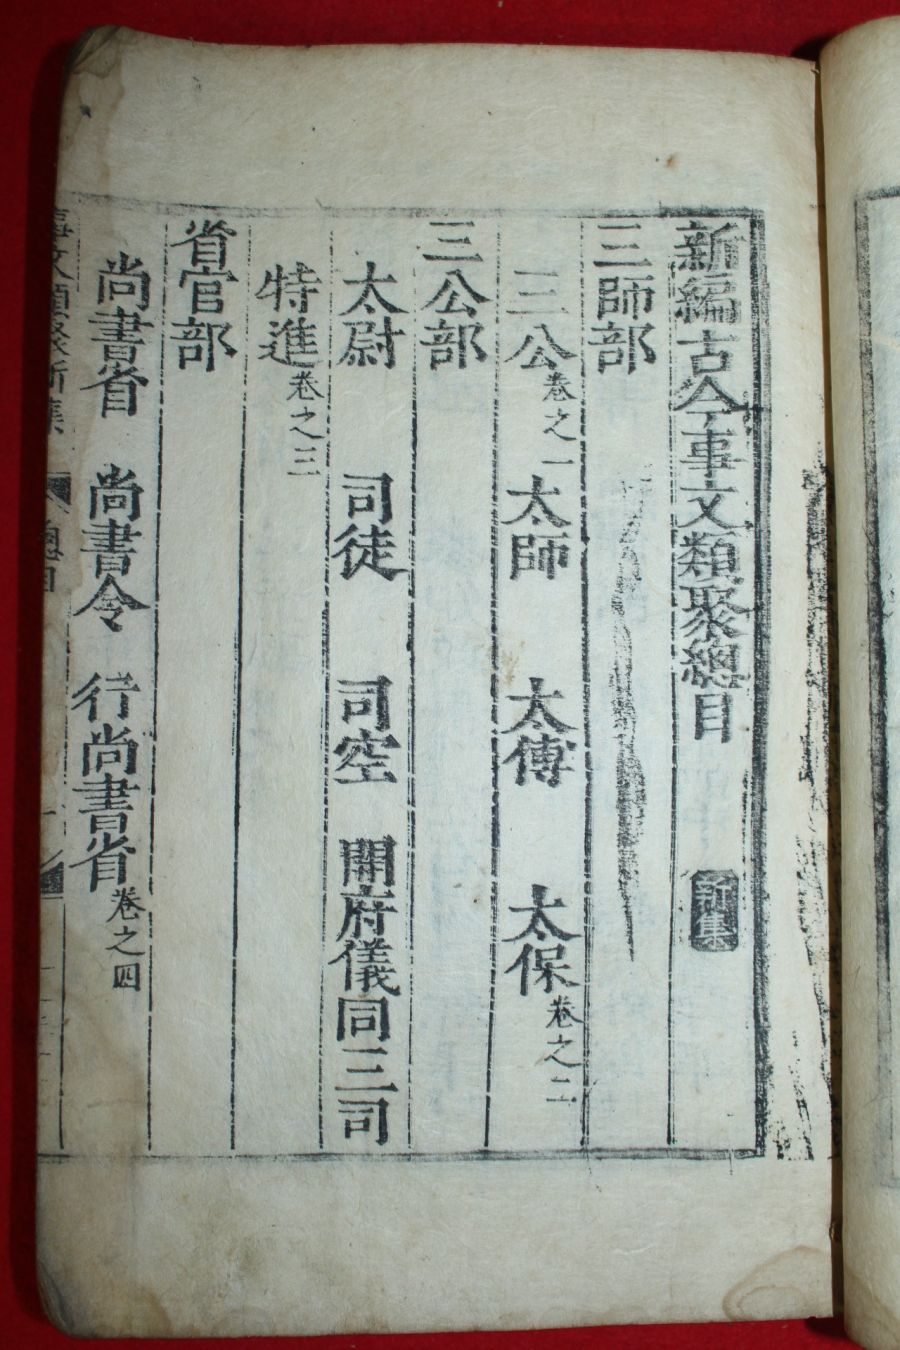 新編古今事文類聚總目 新集
三師部
三公卷之一 太師 太傅 太保卷之二
三公部
太尉 司徒 司空 開府儀同三司
特進卷之三
省官部
尚書省 尚書令 行尚書省卷之四
事文類聚新集 總目